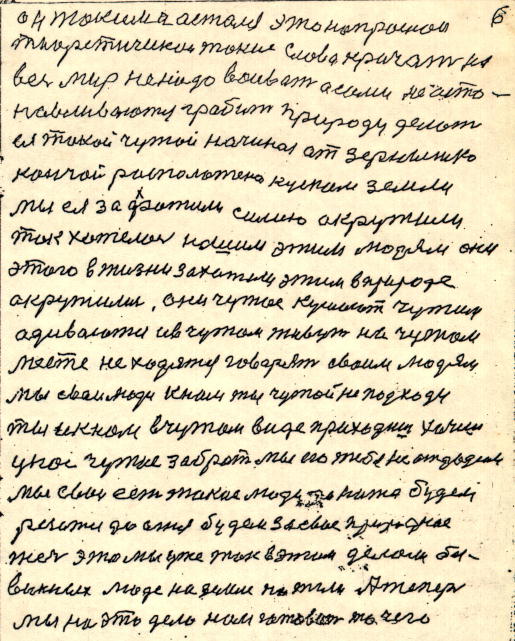 6
он таким астался это напрасной
тиоретичиской такие слова кричат на
весь мир ненадо воиват асами
грабит природу делают
ея такой чужой начиная ат зернышко
кончой расположено куском земли
мы ея захватили силою акружили
так хотелось нашим этим людям они
этого в жизни захатели этим в природе
акружили, они чужое кушают чужим
адиваются ив чужом живут на чужом
месте находятся говорят своим людям
мы сваи люди кнам ты чужой не подходи
ты кнам вчужом виде приходиш хочиш
унас чужое забрат мы его тебе не отдадем
мы свои ест такие люди наша будем
резати до отня будем засвое природное
это мы уже так вэтом делом
люде на земле А тепер
мы на это дело нам чего